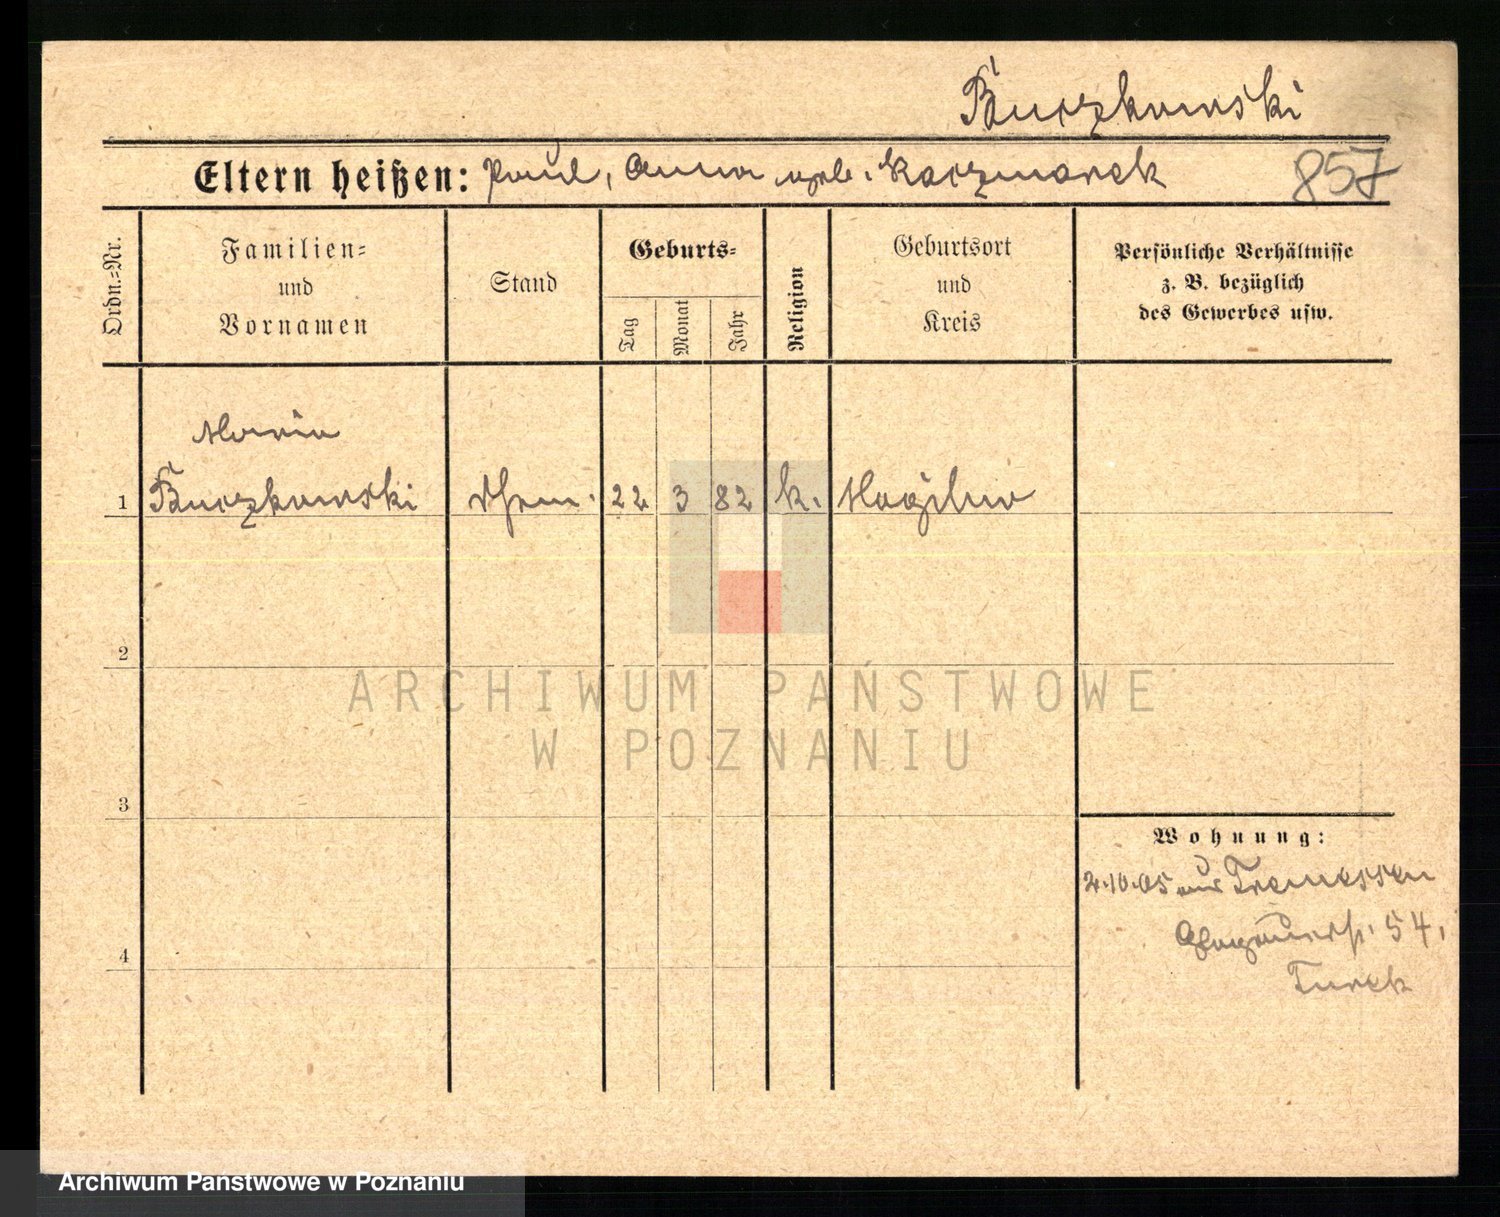 Buczkowski
Eltern heißen: Paul, Anna geb. Kaczmarek
857
Ordn.=Nr.
Familien=
und
Vornamen
Stand
Geburts=
Tag
Monat
Jahr
Religion
Geburtsort
und
Kreis
Persönliche Verhältnisse
z. B. bezüglich
des Gewerbes usw.
Maria
1 Buczkowski 22 3 82 k. Mogilno
2
ARCHIWUM PAŃSTWOWE
W POZNANIU
3
Wohnung:
2.10.05 aus Tremessen
Glogauerstr. 54,
Turek
4
Archiwum Państwowe w Poznaniu